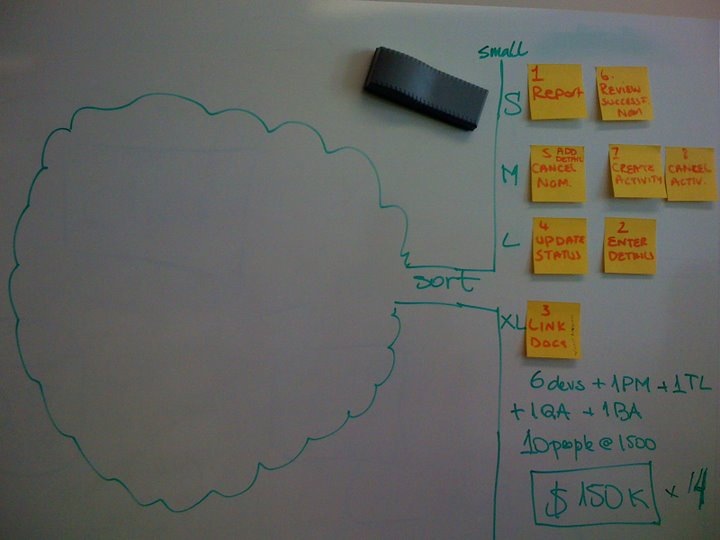 small
S
1
Report
6.
REVIEW
SUCCESSF.
NOM
M
5 ADD
DETAIL
CANCEL
NOM.
7
CREATE
ACTIVITY
8
CANCEL
ACTIV.
L
4
UPDATE
STATUS
2
ENTER
DETAILS
sort
XL
3
LINK
DOCS
6 devs + 1PM + 1TL
+ 1QA + 1BA
10 people @ 1500
$ 150K x 14